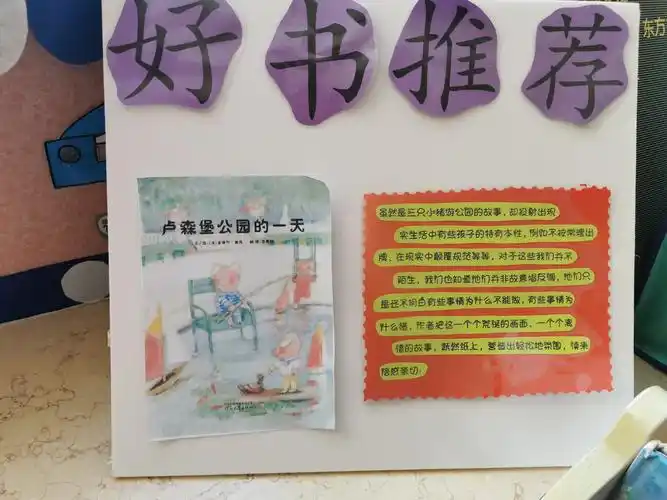 好书推荐
东方
卢森堡公园的一天
虽然是三只小猪游公园的故事，却投射出现
实生活中有些孩子的特有本性，例如不按常理出
牌、在现实中颠覆规范等等，对于这些我们并不
陌生，我们也知道他们并非故意唱反调，他们只
是还不明白有些事情为什么不能做，有些事情为
什么错。作者把这一个个荒诞的画面，一个个离
谱的故事，跃然纸上，营造出轻松地氛围，读来
倍感亲切。